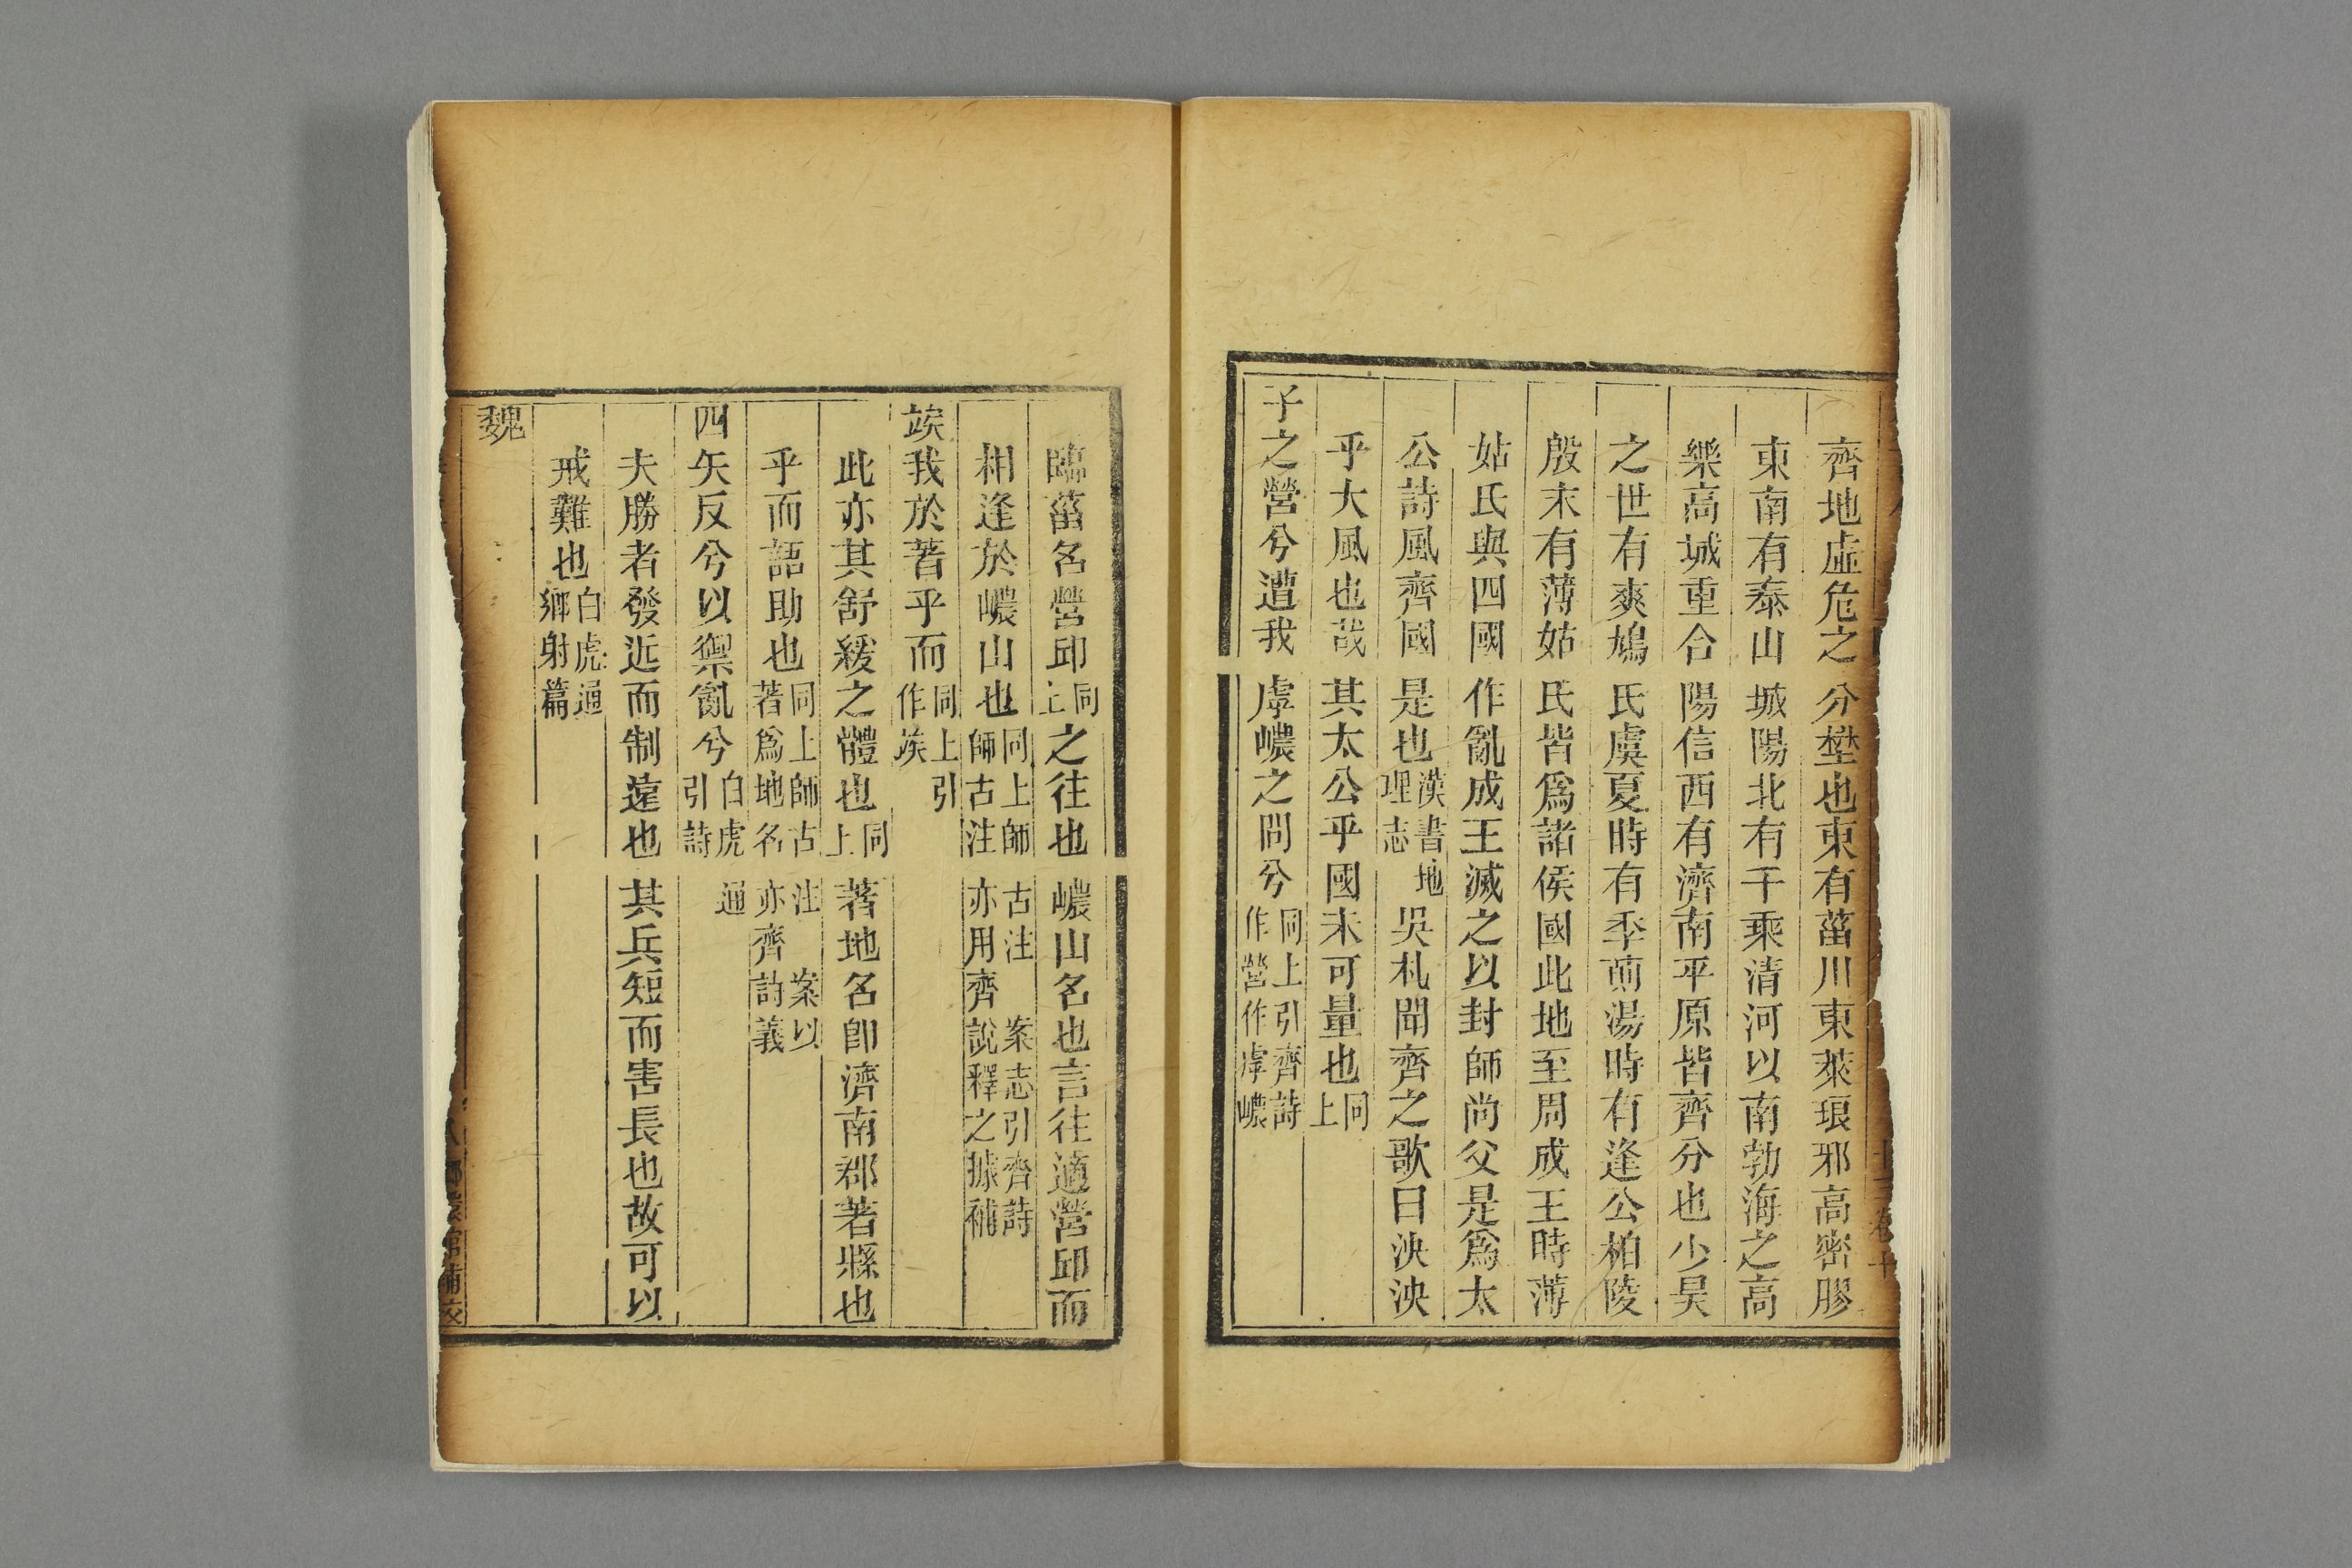 齊地虛危之分壄也東有菑川東萊琅邪高密膠
東南有泰山城陽北有千乘清河以南勃海之高
樂高城重合陽信西有濟南平原皆齊分也少昊
之世有爽鳩氏虞夏時有季萴湯時有逢公柏陵
殷末有薄姑氏皆爲諸侯國此地至周成王時薄
姑氏與四國作亂成王滅之以封師尚父是爲太
公詩風齊國是也漢書地理志吳札聞齊之歌曰泱泱
乎大風也哉其太公乎國未可量也同上
子之營兮遭我虖嶩之間兮同上引齊詩作營作虖嶩
臨菑名營邱同上之往也嶩山名也言往適營邱而
相逢於嶩山也同上師古注師古注亦用齊說釋之案志引齊詩據補
竢我於著乎而同上引作竢
此亦其舒緩之體也同上著地名卽濟南郡著縣也
乎而語助也同上師古注著爲地名亦齊詩義案以
四矢反兮以禦亂兮白虎通引詩
夫勝者發近而制遠也其兵短而害長也故可以
戒難也白虎通鄉射篇
魏